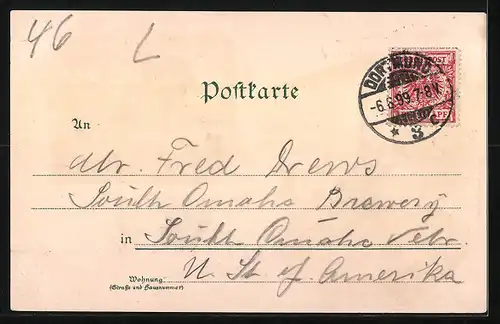 46 L
Postkarte
DORTMUND
-6.6.99.7-8V.
* 3 c
PF
An
Mr. Fred Drews
South Omaha Brewery
in South Omaha Nebr.
U. St. of Amerika
Wohnung:
(Straße und Hausnummer)